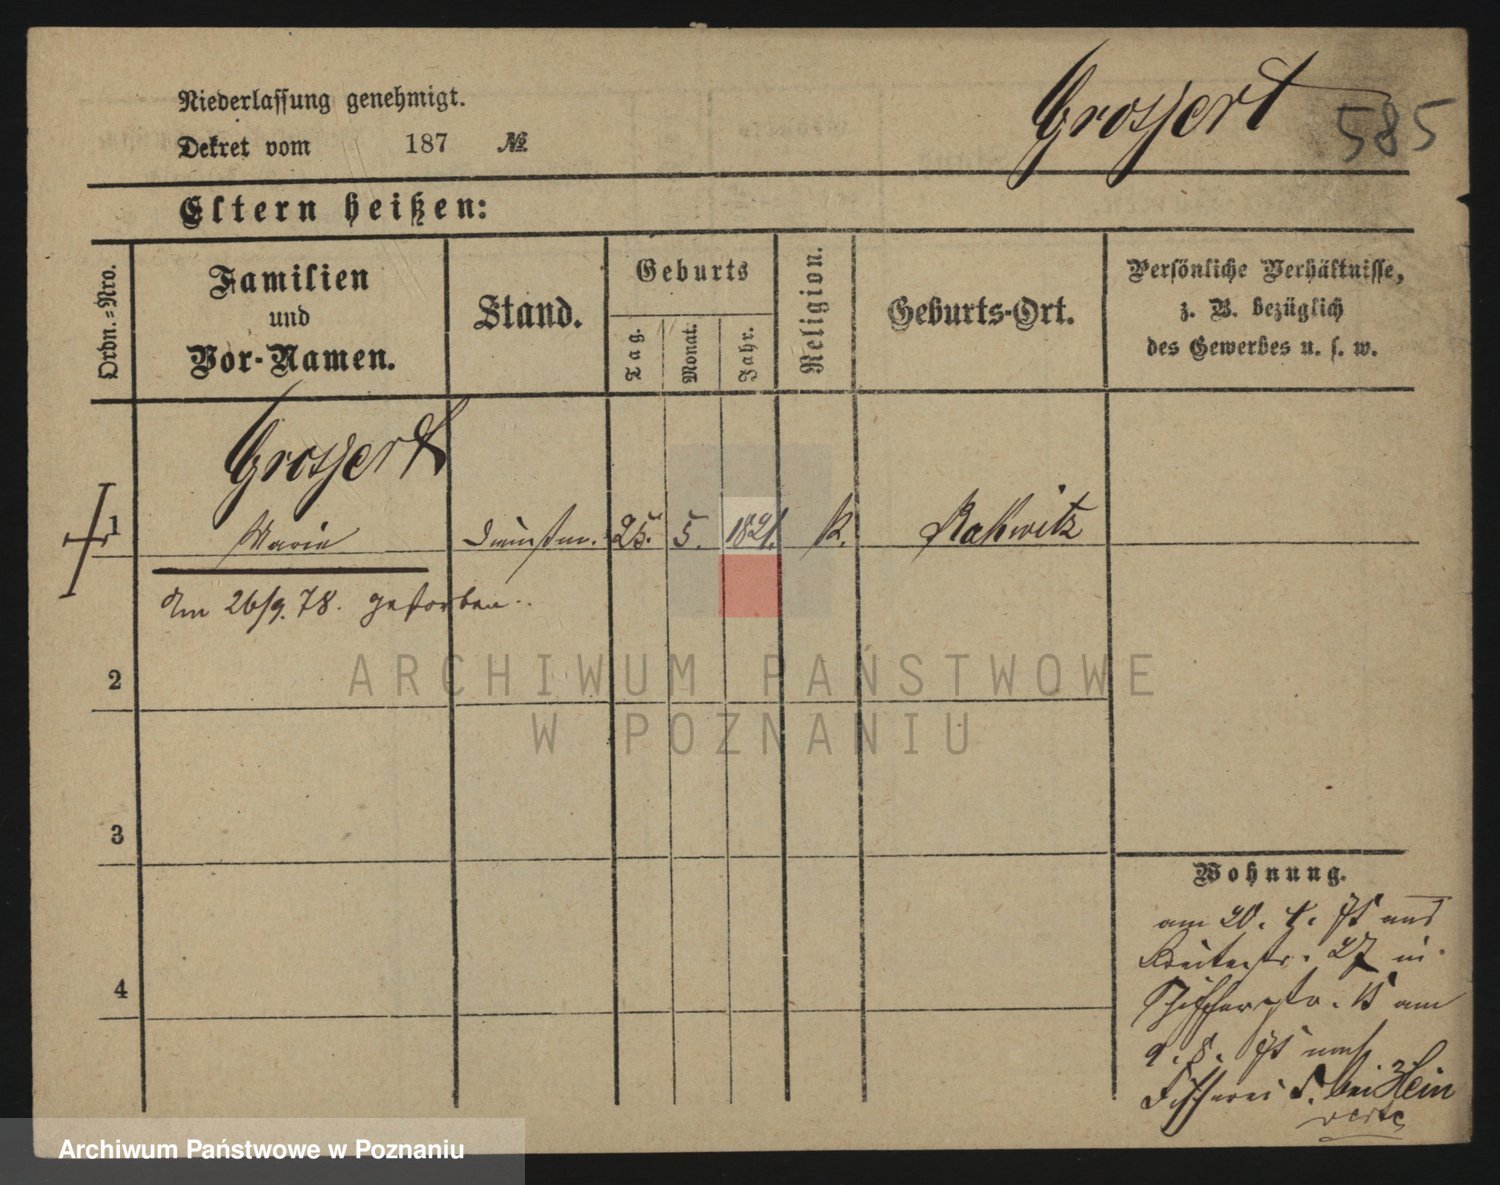 Niederlassung genehmigt.
Grossert
585
Dekret vom 187 №
Eltern heißen:
Ordn.-Nro.
Familien
und
Vor-Namen.
Stand.
Geburts
Tag.
Monat.
Jahr.
Religion.
Geburts-Ort.
Persönliche Verhältnisse,
z. B. bezüglich
des Gewerbes u. s. w.
Grossert
1
Marie
25. 5. 1821. K. Rakwitz
Am 26/9. 78. gestorben.
2
3
4
Wohnung.
am 20. 4. 75 aus
27 in
Schifferstr. 15 am
9. 8. 75 nach
Fischerei 5. bei Hein
verte
ARCHIWUM PAŃSTWOWE
W POZNANIU
Archiwum Państwowe w Poznaniu